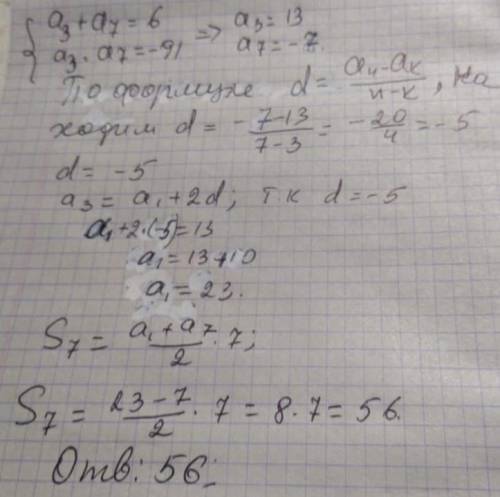 { a₃ + a₇ = 6 => a₃ = 13
a₃ · a₇ = -91 a₇ = -7.
По формуле d = (aₙ - aₖ)/(n - k), на
ходим d = (-7-13)/(7-3) = -20/4 = -5
d = -5
a₃ = a₁ + 2d; т.к d = -5
a₁ + 2·(-5) = 13
a₁ = 13+10
a₁ = 23.
S₇ = (a₁ + a₇)/2 · 7;
S₇ = (23 - 7)/2 · 7 = 8 · 7 = 56.
Отв: 56;